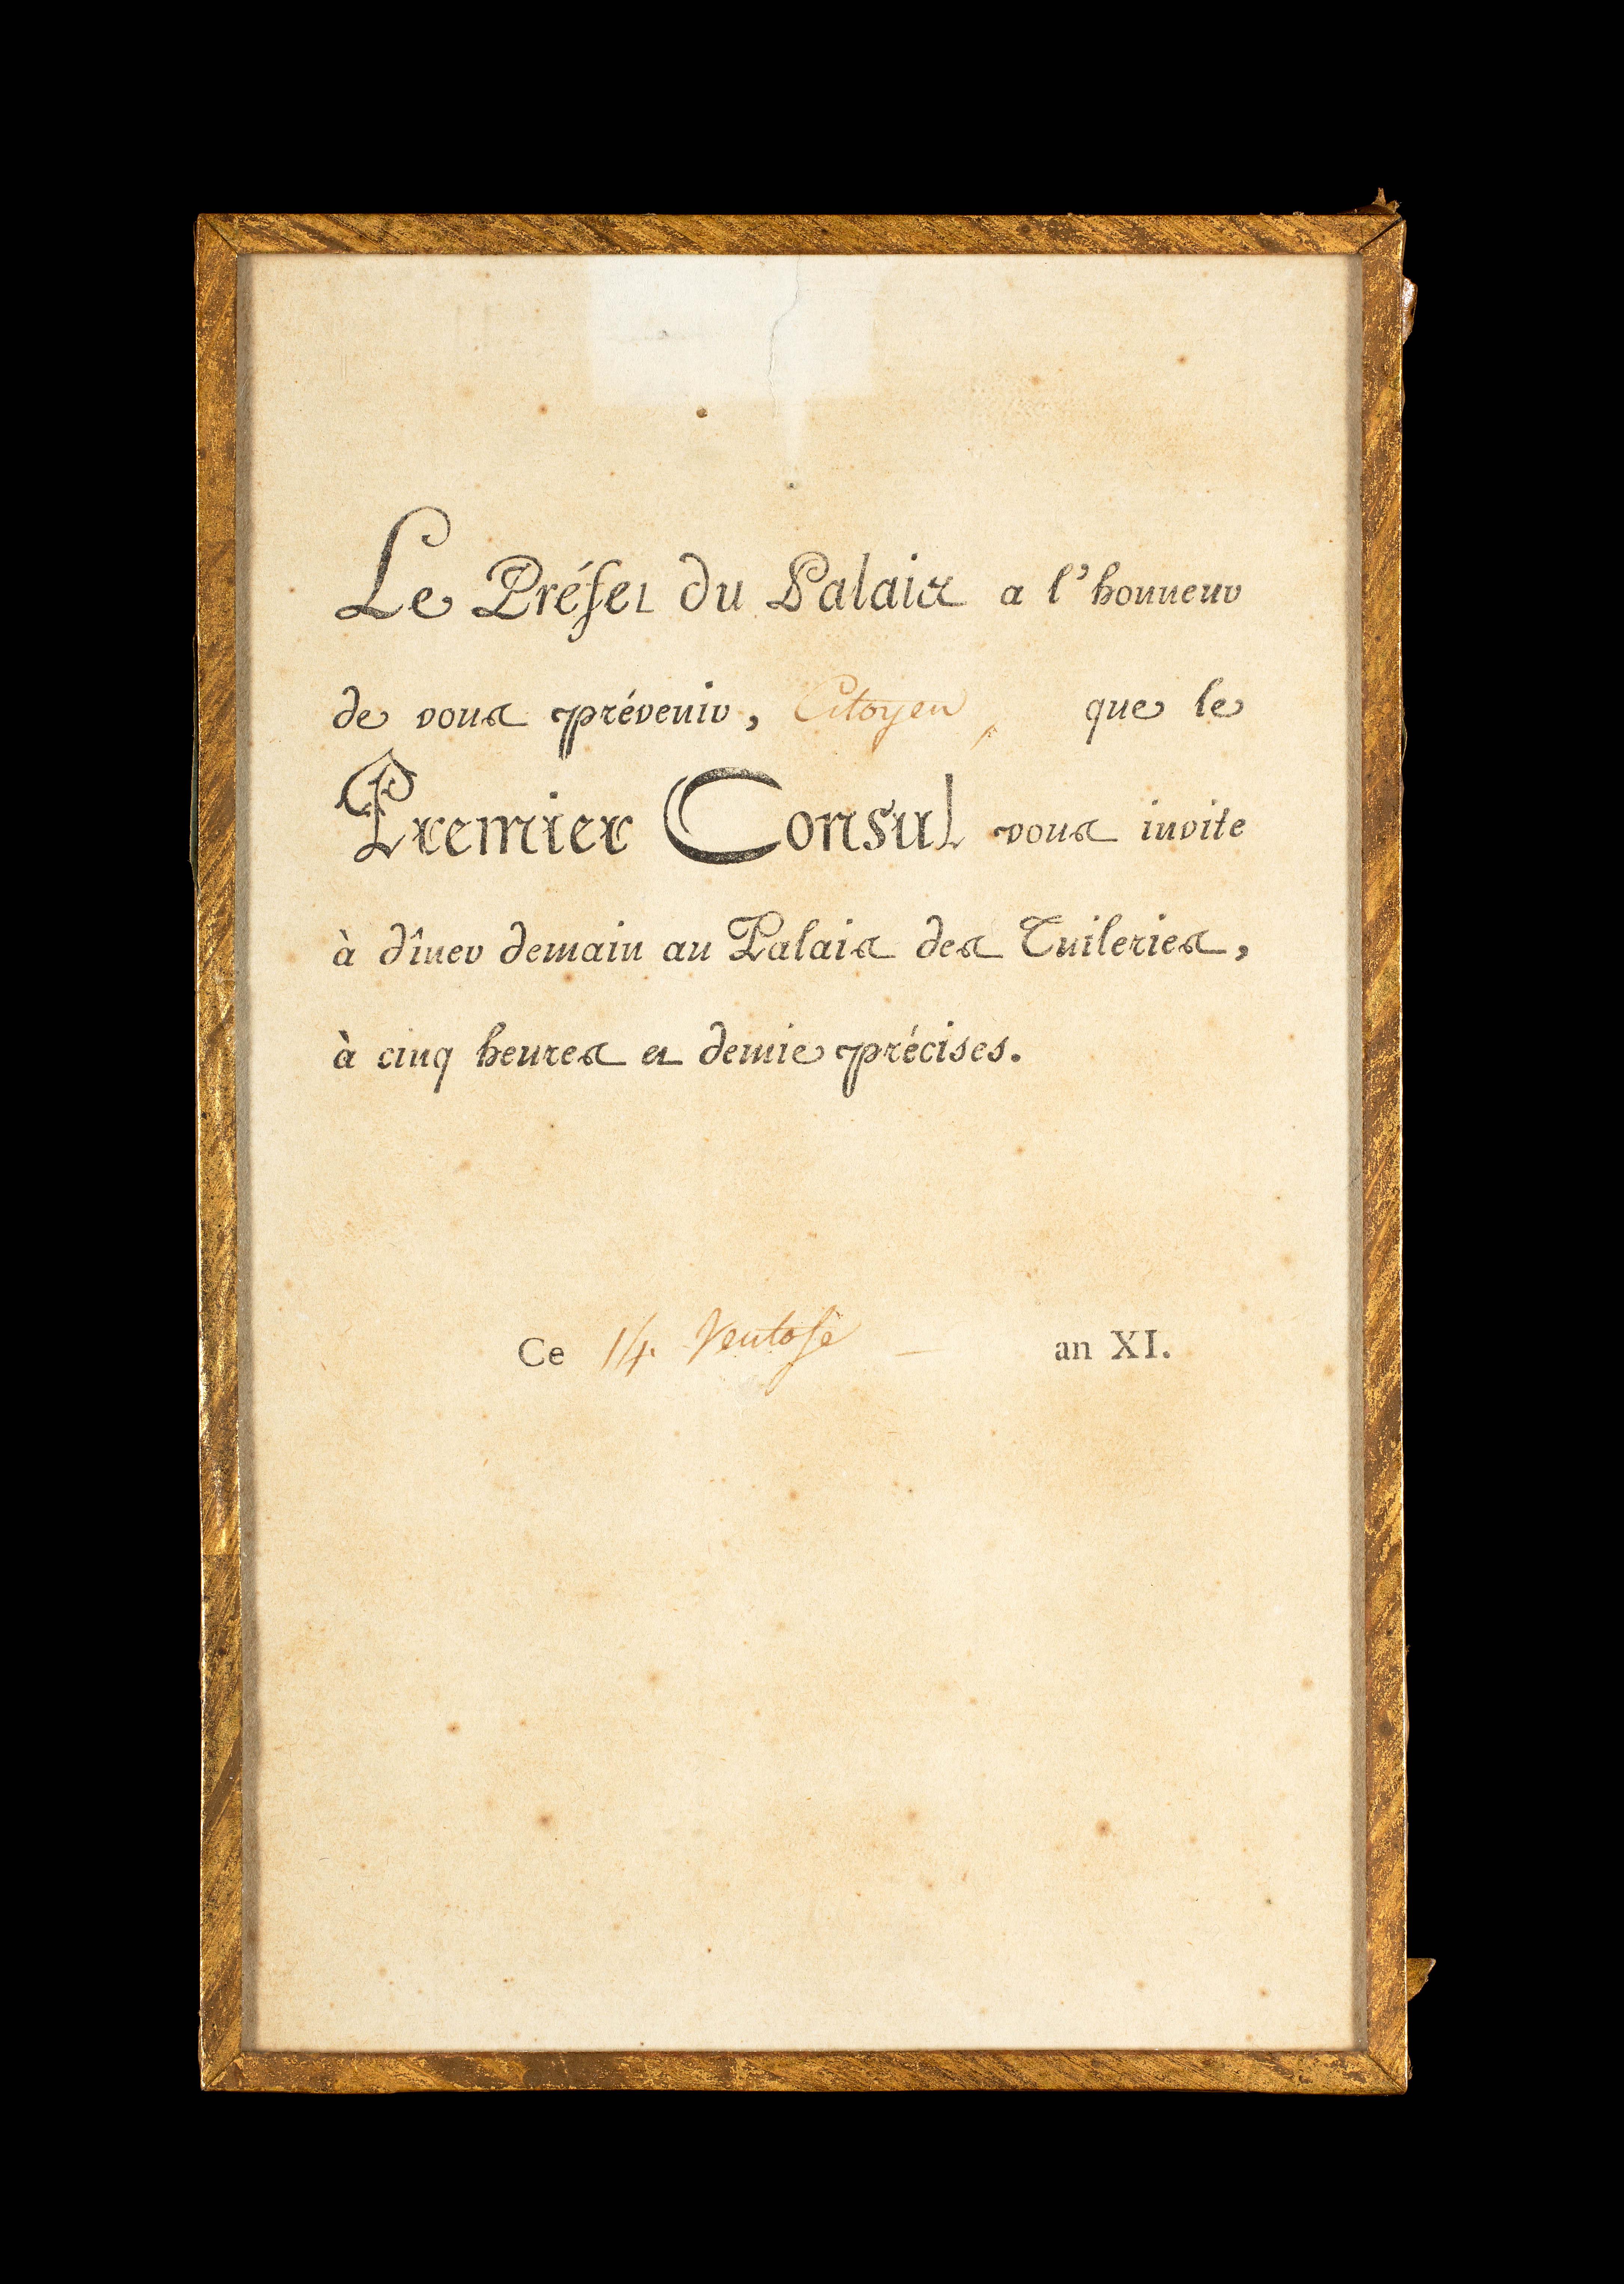 Le Préfet du Palais a l'honneur
de vous prévenir, Citoyen, que le
Premier Consul vous invite
à dîner demain au Palais des Tuileries,
à cinq heures et demie précises.
Ce 14 Ventose an XI.